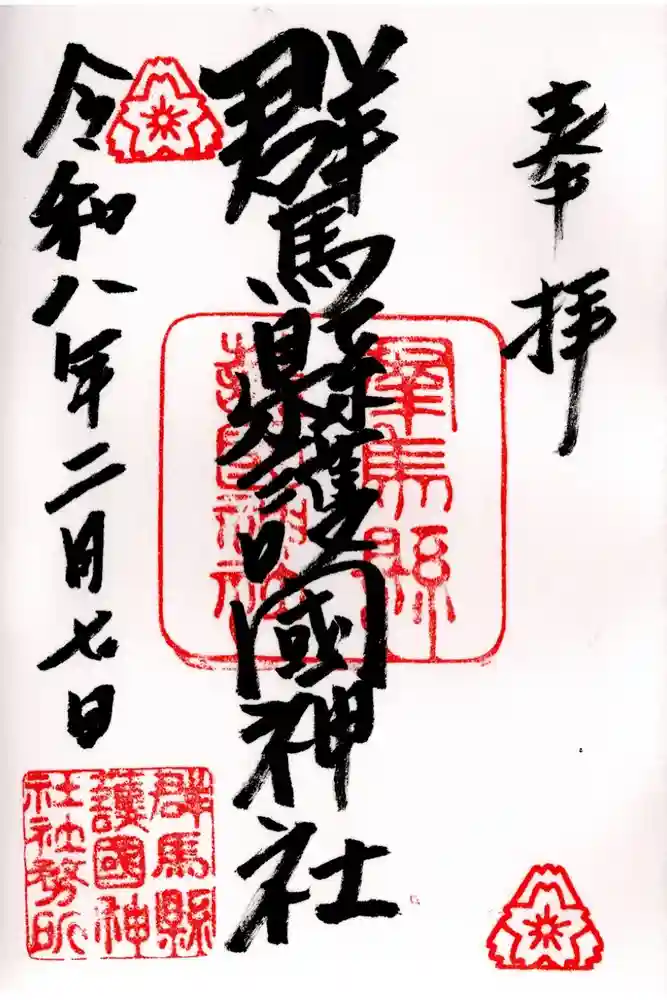 奉拝
群馬縣護國神社
令和八年二月七日
群馬縣
護國神社
群馬縣
護國神
社社務所